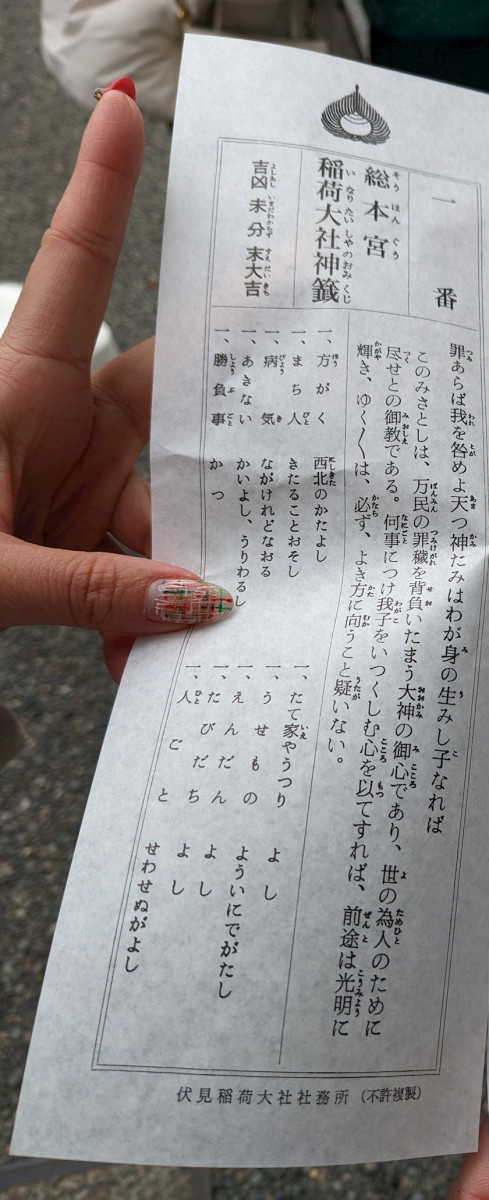 一番
総本宮
稲荷大社神籤
吉凶未分末大吉
罪あらば我を咎めよ天つ神たみはわが身の生みし子なれば
このみさとしは、万民の罪穢を背負いたまう大神の御心であり、世の為人のために
尽せとの御教である。何事につけ我子をいつくしむ心を以てすれば、前途は光明に
輝き、ゆく〱は、必ず、よき方に向うこと疑いない。
一、方がく 西北のかたよし
一、まち人 きたることおそし
一、病気 ながけれどなおる
一、あきない かいよし、うりわるし
一、勝負事 かつ
一、たて家やうつり よし
一、うせもの よういにでがたし
一、えんだん よし
一、たびだち よし
一、人ごと せわせぬがよし
伏見稲荷大社社務所(不許複製)